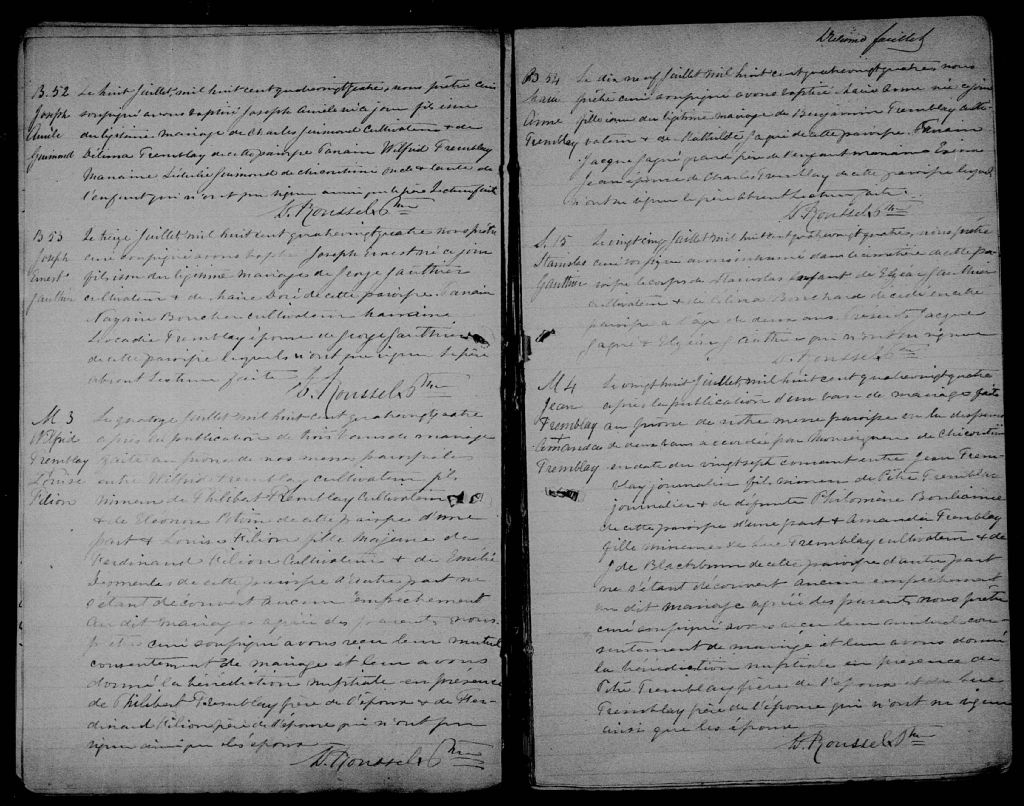 B. 52 Le huit Juillet mil huit cent quatrevingt quatre nous prêtre curé
Joseph soussigné avons baptisé Joseph né ce jour fils issu
Guimond du légitime mariage de Charles Guimond Cultivateur & de
Délima Tremblay de cette paroisse Parain Wilfrid Tremblay
Maraine Guimond de chicoutimi oncle & tante de
l'enfant qui n'ont pu signer ainsi que le père Lecture faite
D. Roussel Ptre
B 53 Le treize Juillet mil huit cent quatrevingt quatre nous prêtre
Joseph curé soussigné avons baptisé Joseph Ernest né ce jour
Ernest fils issu du légitime mariage de George Gauthier
Gauthier cultivateur & de Marie Doré de cette paroisse Parain
Boucher cultivateur Maraine
Léocadie Tremblay épouse de George Gauthier
de cette paroisse lesquels n'ont pu signer le père
absent Lecture faite
D. Roussel Ptre
M 3 Le quatorze Juillet mil huit cent quatrevingt quatre
Wilfrid après la publication de trois bans de mariage
Tremblay faite au prône de nos messes paroissiales
Louise entre Wilfrid Tremblay cultivateur fils
Filion mineur de Philibert Tremblay Cultivateur
& de Eleonore Potvin de cette paroisse d'une
part & Louise Filion fille Majeure de
Ferdinand Filion Cultivateur & de Emélie
de cette paroisse d'autre part ne
s'étant découvert aucun empêchement
au dit mariage agréé des parents, nous
prêtre curé soussigné avons reçu leur mutuel
consentement de mariage et leur avons
donné la bénédiction nuptiale en présence
de Philibert Tremblay père de l'époux & de Fer-
dinand Filion père de l'épouse qui n'ont pu
signer ainsi que les époux
D. Roussel Ptre
feuillet
B 54 Le dix neuf Juillet mil huit cent quatrevingt quatre, nous
Marie prêtre curé soussigné avons baptisé Marie Anne née ce jour
Anne fille issue du légitime mariage de Benjamin Tremblay culti-
Tremblay vateur & de Mathilde Gagné de cette paroisse Parain
Jacque Gagné grand père de l'enfant maraine
Jean épouse de Charles Tremblay de cette paroisse lesquels
n'ont su signer le père absent Lecture faite
D. Roussel Ptre
S. 15 Le vingt cinq Juillet mil huit cent quatrevingt quatre, nous prêtre
Stanislas curé soussigné avons inhumé dans le cimetière de cette pa-
Gauthier roisse le corps de Stanislas enfant de Elzéar Gauthier
cultivateur & de Bouchard décédé en cette
paroisse à l'age de deux ans. Présents Jacque
Gagné & Elzéar Gauthier qui n'ont su signer
D. Roussel Ptre
M 4 Le vingt huit Juillet mil huit cent quatrevingt quatre
Jean après la publication d'un ban de mariage faite
Tremblay au prône de notre messe paroissiale vu la dispense
Amanda de deux bans accordée par Monseigneur de Chicoutimi
Tremblay en date du vingt sept courant entre Jean Trem-
blay journalier fils mineur de Pitre Tremblay
journalier & de défunte Philomène Bonhomme
de cette paroisse d'une part & Amanda Tremblay
fille mineure de Luc Tremblay cultivateur & de
Blackburn de cette paroisse d'autre part
ne s'étant découvert aucun empêchement
au dit mariage agréé des parents, nous prêtre
curé soussigné avons reçu leur mutuel con-
sentement de mariage et leur avons donné
la bénédiction nuptiale en présence de
Pitre Tremblay père de l'époux et de Luc
Tremblay père de l'épouse qui n'ont su signer
ainsi que les époux
D. Roussel Ptre